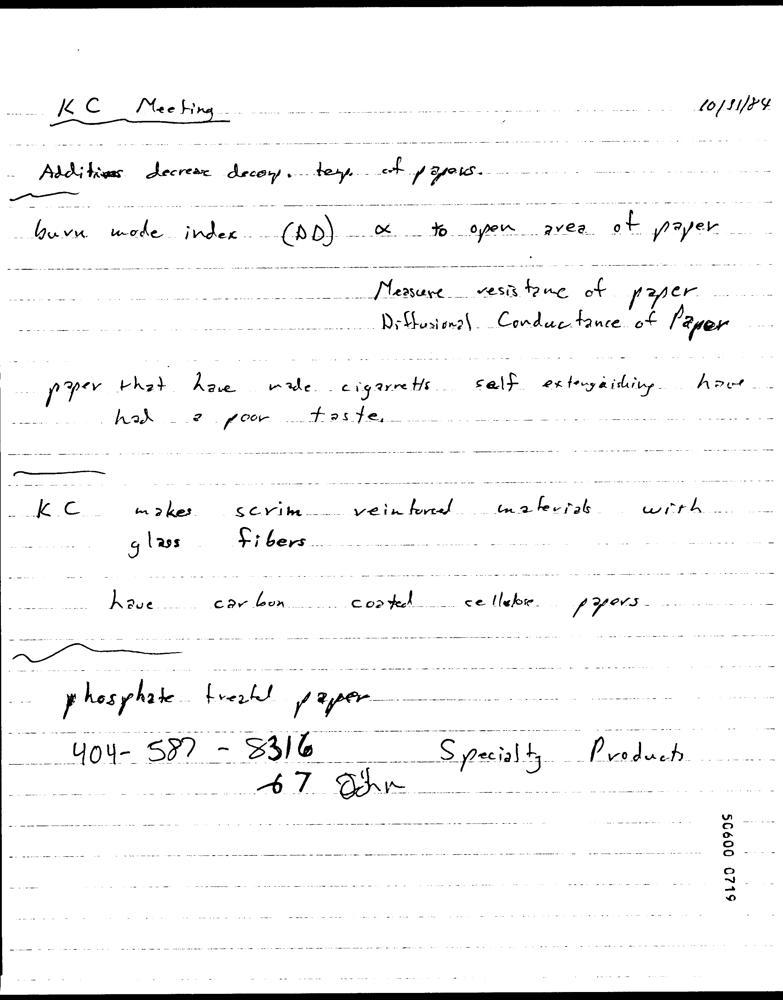 KC Meeting 10/31/84
Additives decrease decomp. temp. of papers.
burn mode index (AD) ∝ to open area of paper
Measure resistance of paper
Diffusional Conductance of Paper
paper that have made cigarretts self extenguishing have
had a poor taste.
KC makes scrim reinforced materials with
glass fibers
have carbon coated cellulose papers.
phosphate treated paper
404-587-8316 Specialty Products
67 John
50600 0719